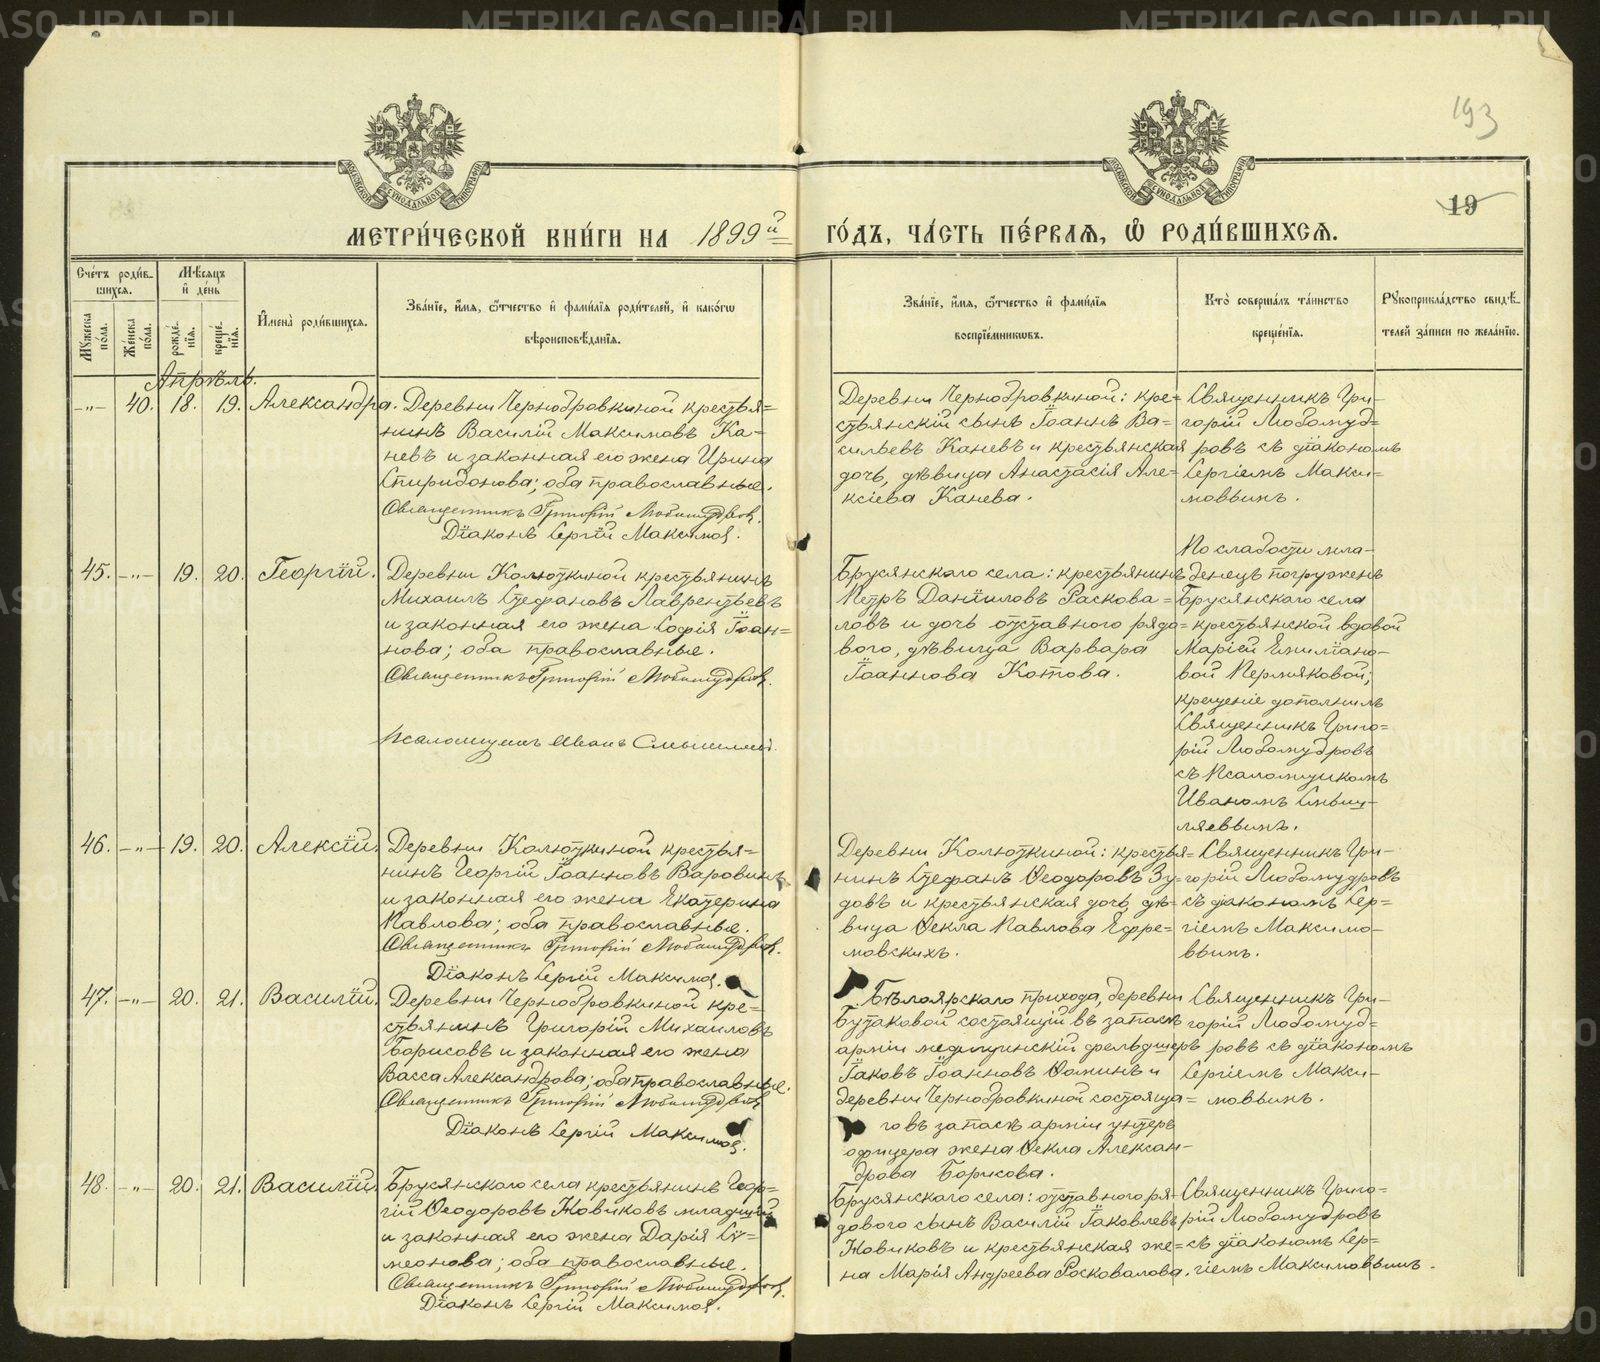 METRIKI.GASO-URAL.RU
193
МОСКОВСКОЙ СѴНОДАЛЬНОЙ ТИПОГРАФІИ
МОСКОВСКОЙ СѴНОДАЛЬНОЙ ТИПОГРАФІИ
19
МЕТРИ́ЧЕСКОЙ КНИ́ГИ НА 1899й ГО́ДЪ, ЧА́СТЬ ПЕ́РВАѦ, Ѡ РОДИ́ВШИХСѦ.
Сче́тъ роди́в-
шихсѧ.
Мꙋжеска по́ла.
Же́нска по́ла.
Мѣ́сѧцъ
и де́нь
рожде́-
нїѧ.
креще́-
нїѧ.
И҆мена̀ роди́вшихсѧ.
Зва́нїе, и҆́мѧ, ѻ҆́тчество и҆ фами́лїѧ роди́телей, и҆ како́гѡ
вѣроисповѣ́данїѧ.
Зва́нїе, и҆́мѧ, ѻ҆́тчество и҆ фами́лїѧ
воспрїе́мникѡвъ.
Кто̀ соверша́лъ та́инство
креще́нїѧ.
Рꙋкоприкла́дство свидѣ́-
телей за́писи по жела́нїю.
Апрѣль.
-"- 40. 18. 19. Александра.
Деревни Чернобровкиной крестья=
нинъ Василій Максимовъ Ка-
невъ и законная его жена Ирина
Спиридонова; оба православные.
Священникъ Григорій Любомудровъ.
Діаконъ Сергій Максимов.
Деревни Чернобровкиной: кре=
стьянскій сынъ Іоаннъ Ва=
сильевъ Каневъ и крестьянская
дочь, дѣвица Анастасія Але-
ксіева Канева.
Священникъ Гри-
горій Любомуд=
ровъ съ діакономъ
Сергіемъ Макси-
мовымъ.
45. -"- 19. 20. Георгій.
Деревни Колюткиной крестьянинъ
Михаилъ Стефановъ Лаврентьевъ
и законная его жена Софія Іоан=
нова; оба православные.
Священникъ Григорій Любомудровъ.
Псаломщикъ Иванъ
Брусянскаго села: крестьянинъ
Петръ Даніиловъ Раскова=
ловъ и дочь отставного рядо=
вого, дѣвица Варвара
Іоаннова Котова.
По слабости мла-
денецъ погруженъ
Брусянскаго села
крестьянской вдовой
Маріей Емиліано-
вой Пермяковой;
крещеніе дополнилъ
Священникъ Григо=
рій Любомудровъ
съ Псаломщикомъ
Иваномъ Смыш-
ляевымъ.
46. -"- 19. 20. Алексій.
Деревни Колюткиной крестья=
нинъ Георгій Іоанновъ Варовинъ
и законная его жена Екатерина
Павлова; оба православные.
Священникъ Григорій Любомудровъ.
Діаконъ Сергій Максимов.
Деревни Колюткиной: крестья=
нинъ Стефанъ Ѳеодоровъ Зу=
довъ и крестьянская дочь, дѣ=
вица Ѳекла Павлова Ефре-
мовскихъ.
Священникъ Гри-
горій Любомудровъ
съ діакономъ Сер=
гіемъ Максимо-
вымъ.
47. -"- 20. 21. Василій.
Деревни Чернобровкиной кре=
стьянинъ Григорій Михаиловъ
Борисовъ и законная его жена
Васса Александрова; оба православные.
Священникъ Григорій Любомудровъ
Діаконъ Сергій Максимов.
Бѣлоярскаго прихода, деревни
Бутаковой состоящій въ запасѣ
арміи медицинскій фельдшеръ
Іаковъ Іоанновъ Ѳоминъ и
деревни Чернобровкиной состояща=
го въ запасѣ арміи унтеръ
офицера жена Ѳекла Алексан-
дрова Борисова.
Священникъ Гри-
горій Любомуд=
ровъ съ діакономъ
Сергіемъ Макси-
мовымъ.
48. -"- 20. 21. Василій.
Брусянскаго села крестьянинъ Геор=
гій Ѳеодоровъ Новиковъ младшій
и законная его жена Дарія Си=
меонова; оба православные.
Священникъ Григорій Любомудровъ.
Діаконъ Сергій Максимов.
Брусянскаго села: отставного ря-
дового сынъ Василій Іаковлевъ
Новиковъ и крестьянская же=
на Марія Андреева Росковалова.
Священникъ Григо=
рій Любомудровъ
съ діакономъ Сер-
гіемъ Максимовымъ.